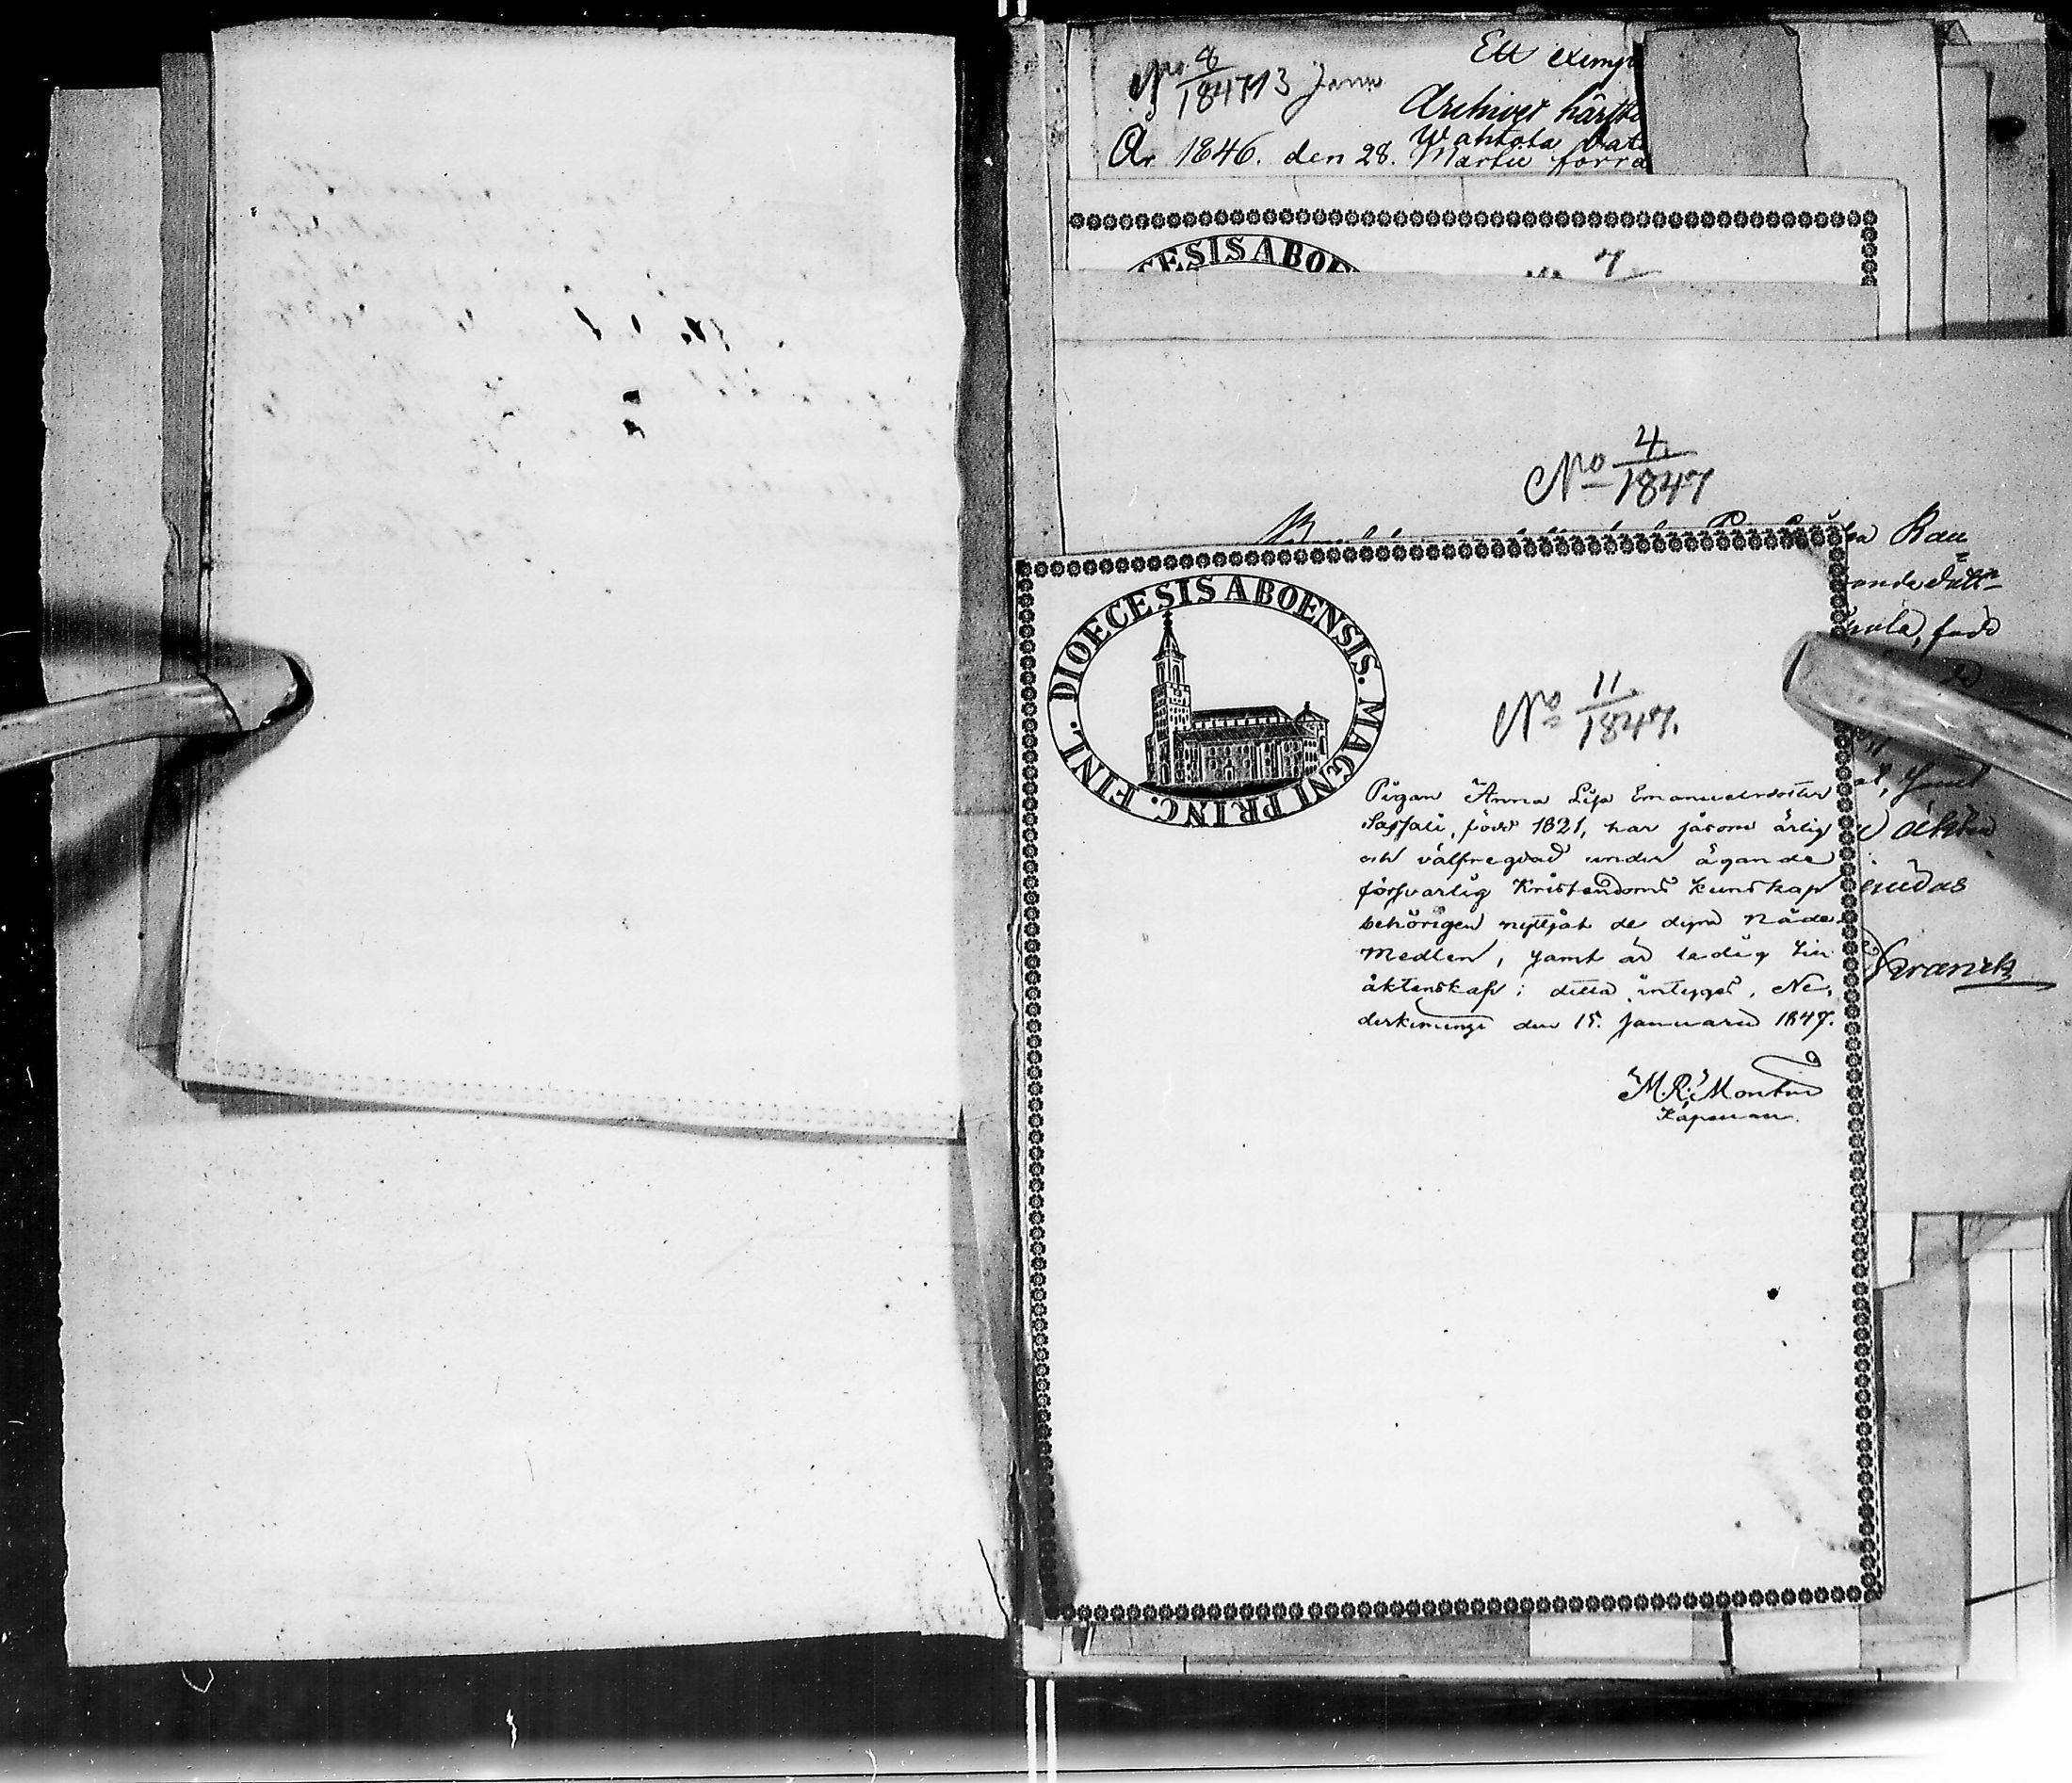 No 8/1847 13 Janu
Ett exemp
Archivet härst
Wahtola
År 1846. den 28. Martii förra
ESIS ABOE
7
No 4/1847
Rau
född
DIOECESIS ABOENSIS. MAGNI PRINC. FINL.
No 11/1847.
Pigan Anna Lisa Emanuelsdotter
Sassali, född 1821, har såsom ärlig
och välfregdad under ägande
försvarlig Kristendoms kunskap
behörigen nyttjat de dyra Nåde
Medlen, samt är ledig till
äktenskap; detta intygas. Ne,
derkimingi den 15. Januarii 1847.
M. R. Montin
Kapellan.